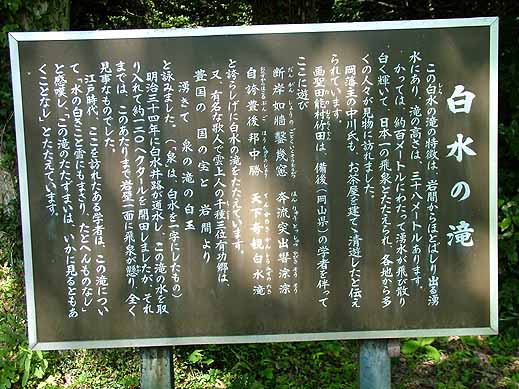 白水の滝
この白水の滝の特徴は、岩間からほとばしり出る湧
水にあり、滝の高さは、三十八メートルあります。
かつては、約百メートルにわたって湧水が飛び散り
白く輝いて、日本一の飛泉とたたえられ、各地から多
くの人々が見物に訪れました。
岡藩主の中川氏も、お茶屋を建て清遊したと伝え
られています。
画聖田能村竹田は、備後(岡山県)の学者を伴って
ここに遊び
断岸如牆鑿幾窓 奔流突出響淙淙
自誇豊後邦中勝 天下奇観白水滝
と誇らしげに白水の滝をたたえています。
又、有名な歌人で雲上人の千種三位有功郷は、
豊国の 国の宝と 岩間より
湧きて 泉の滝の白玉
と詠みました。(泉は、白水を一字にしたもの)
明治三十四年に白水井路が通水し、この滝の水を取
り入れて約二〇〇ヘクタールを開田しましたが、それ
までは、このあたりまで岩壁一面に飛泉が懸り、全く
見事なものでした。
江戸時代、ここを訪れたある学者は、この滝につい
て「水の白きこと雪にもまさり、たとへんものなし」
と驚嘆し、「この滝のたたずまいは、いかに見るともあ
くことなし」とたたえています。